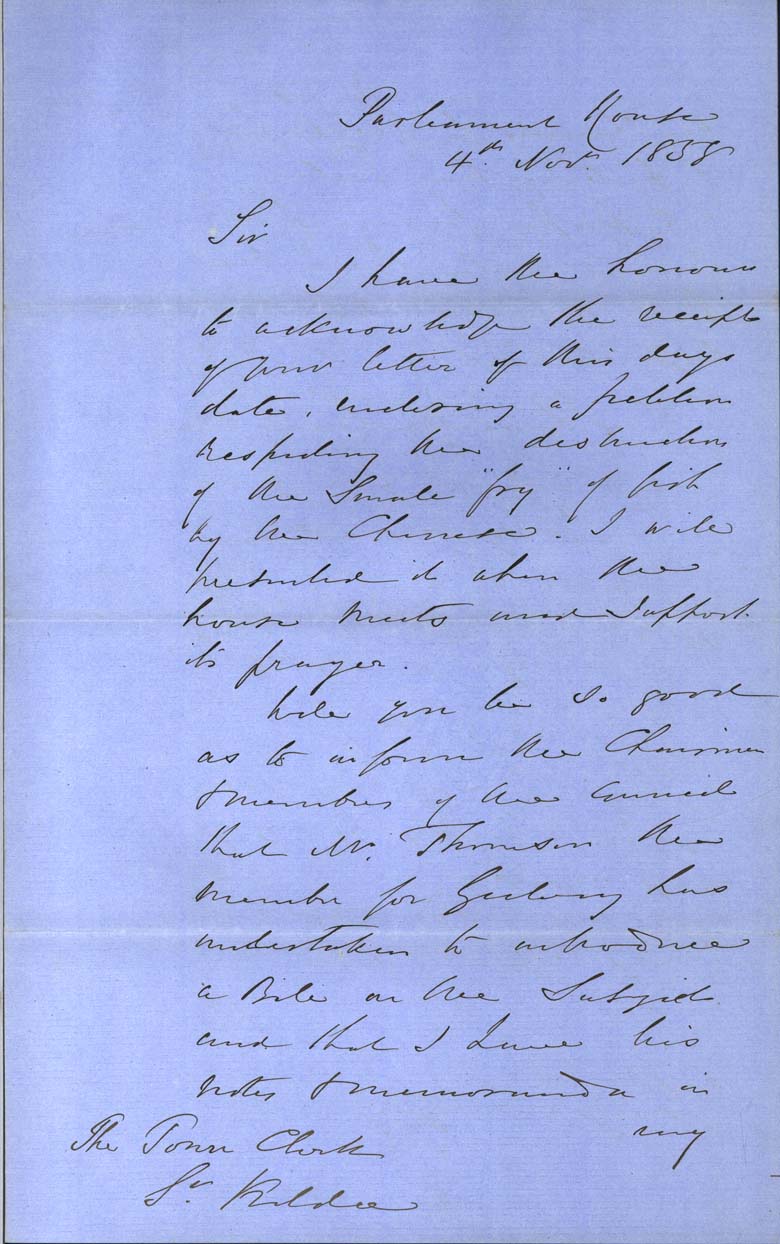 Parliament House
4th. Novr. 1858
Sir
I have the honour
to acknowledge the receipt
of your letter of this days
date, enclosing a petition
respecting the destruction
of the Small "fry" of fish
by the Chinese. I will
presented it when the
house meets and Support
its prayer.
Will you be so good
as to inform the Chairman
& members of the Council
that Mr. Thomson the
member for Geelong has
undertaken to introduce
a Bill on the Subject
and that I have his
notes & memoranda in
my
The Town Clerk
St Kilda